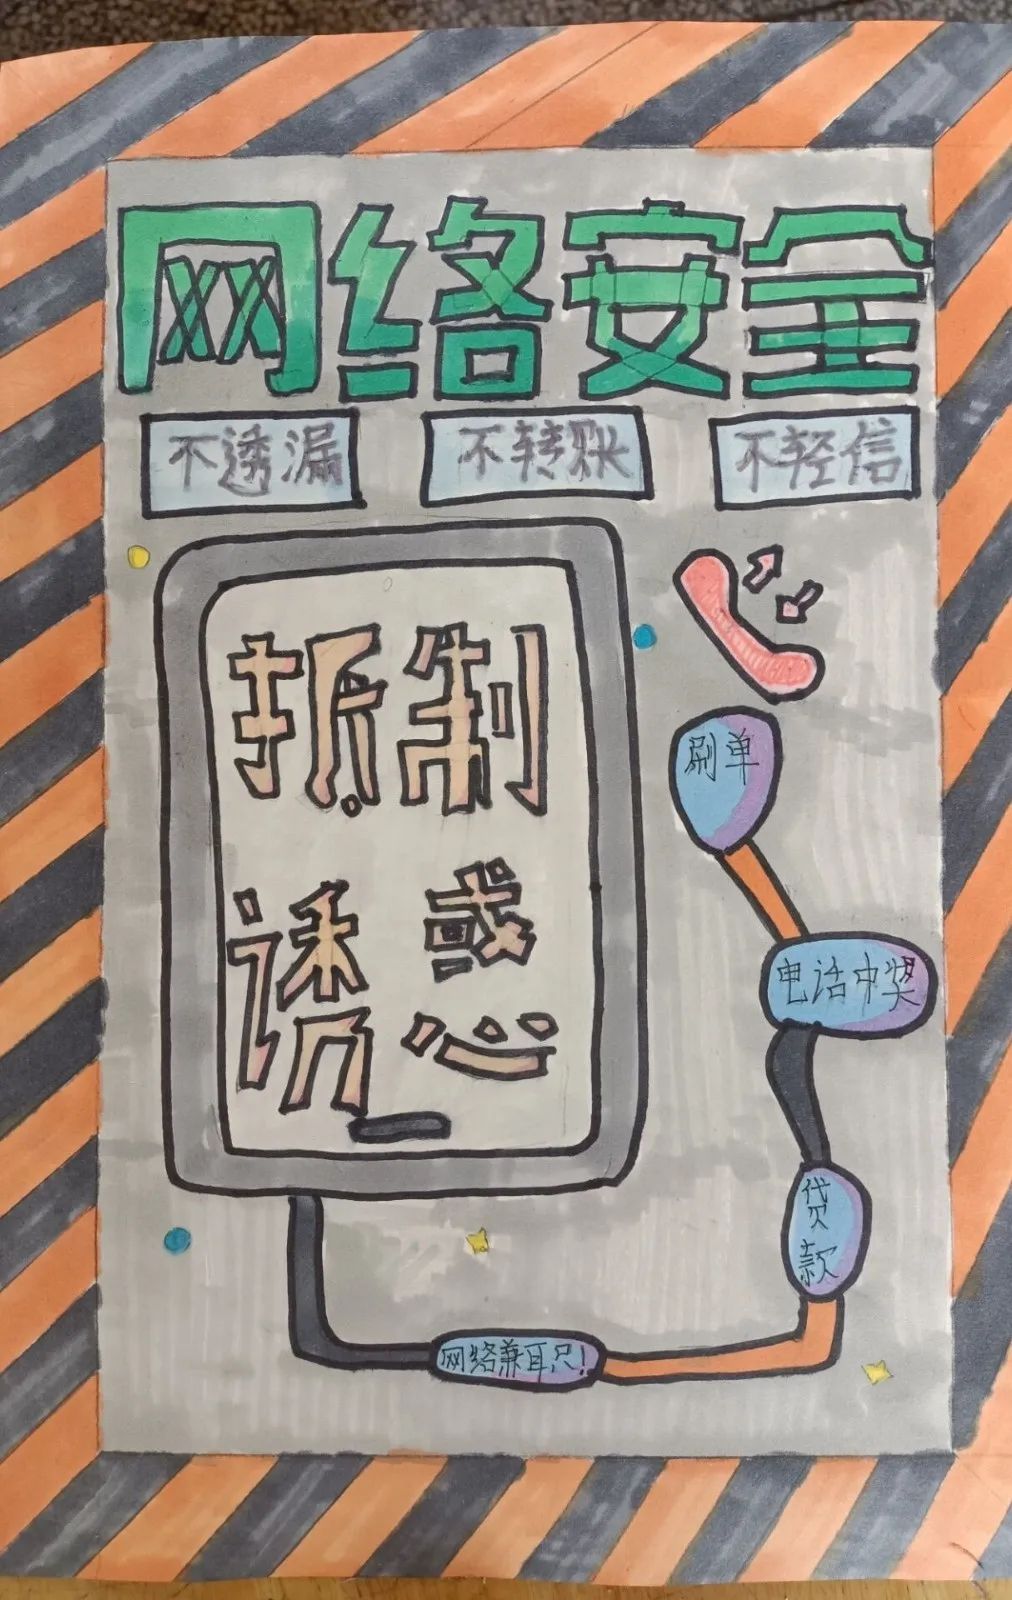 网络安全
不透漏 不转账 不轻信
抵制
诱惑
刷单
电话中奖
贷款
网络兼职!